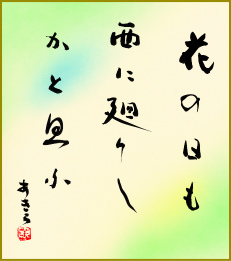 花の日も
西に廻りし
かと思ふ
あきら